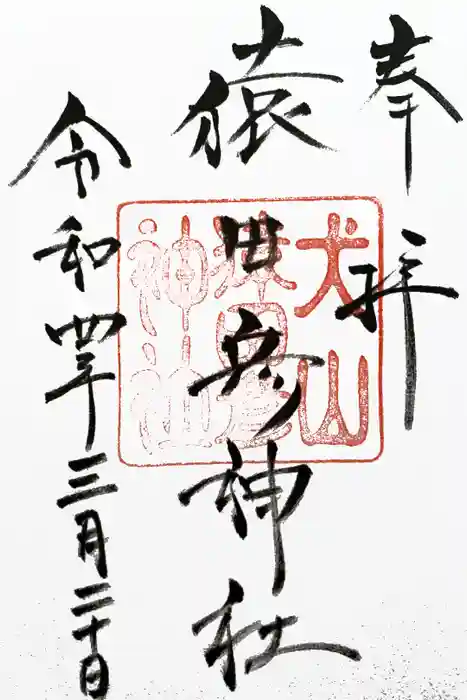 奉拝
猿田彦神社
令和四年三月二十日
犬山
猿田彦
神社